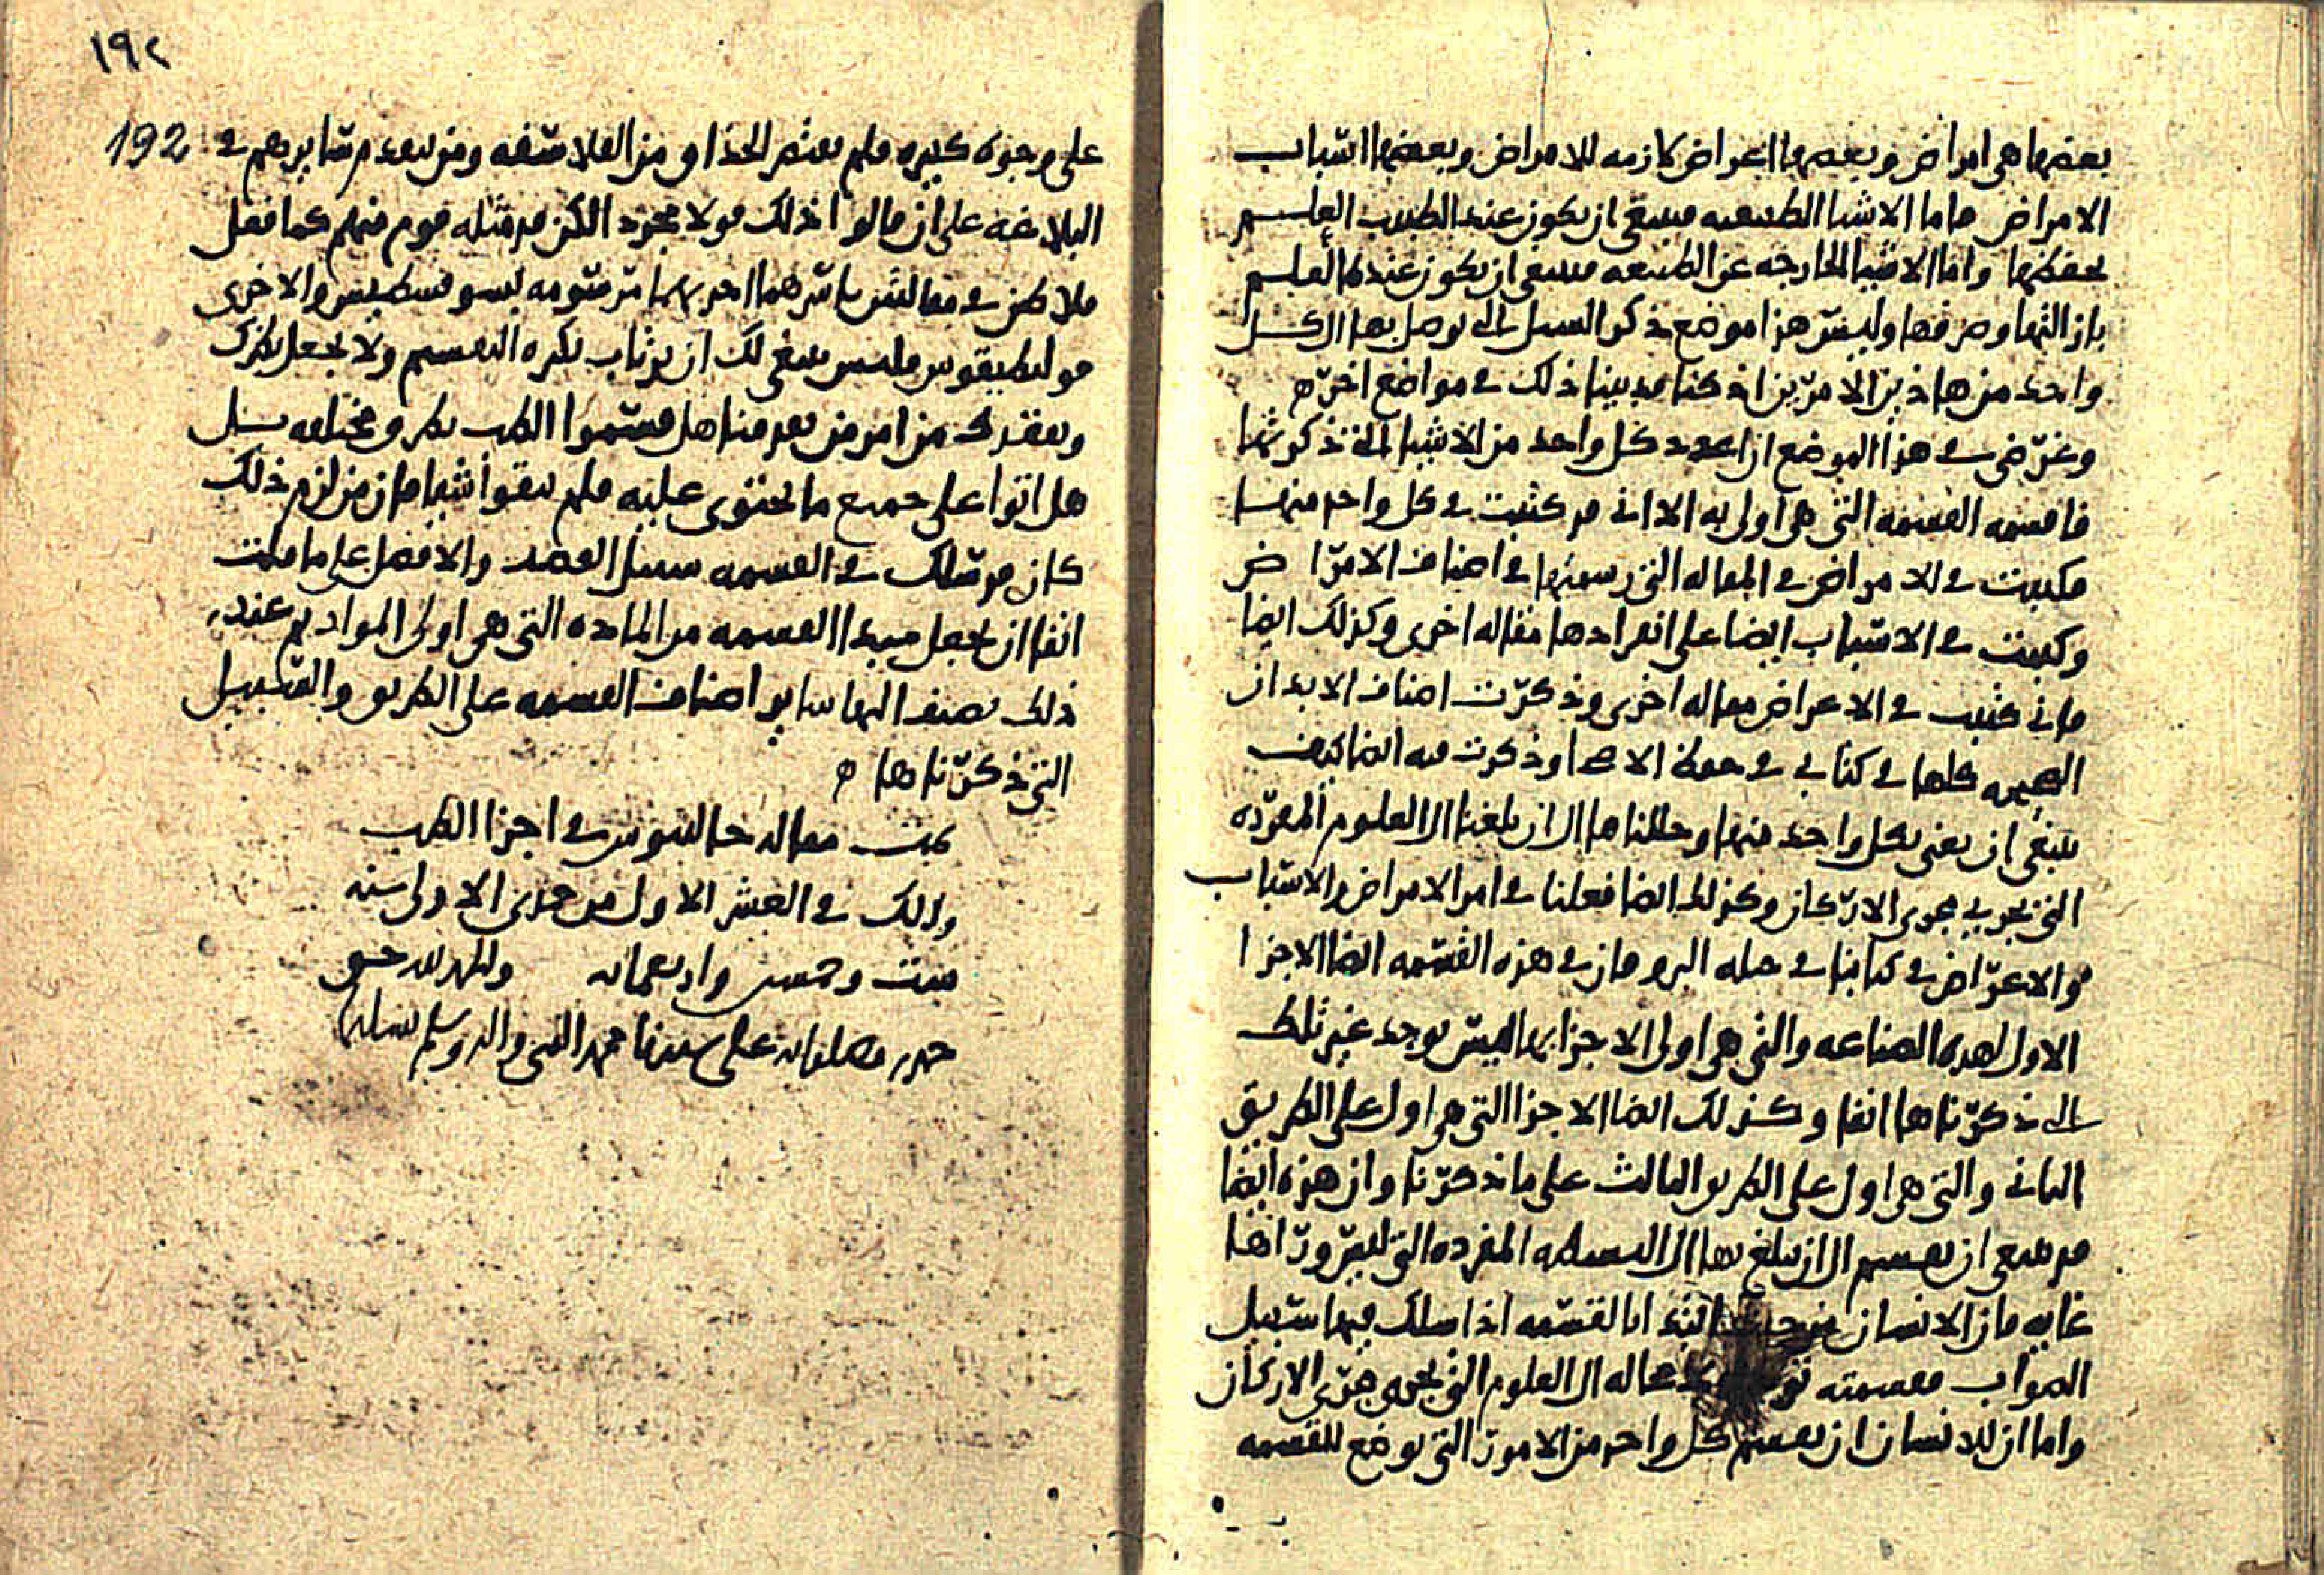 بعضها هى امراض وبعضها اعراض لازمه للامراض وبعضها اسباب
الامراض فاما الاشيا الطبيعيه فينبغى ان يكون عند الطبيب العلم
بحفظها واما الاشيا الخارجه عن الطبيعه فينبغى ان يكون عنده العلم
بازالتها وصرفها وليس هذا موضع ذكر السبل التى يوصل بها الى كل
واحد من هاذين الامرين اذ كنا قد بينا ذلك فى مواضع اخر ه
وغرضى فى هذا الموضع ان اعدد كل واحد من الاشيا التى ذكرتها
فاقسمه القسمه التى هى اولى به الا انى قد كتبت فى كل واحد منها
فكتبت فى الامراض فى المقاله التى رسمتها فى اصناف الامراض
وكتبت فى الاسباب ايضا على انفرادها مقاله اخرى وكذلك ايضا
فانى كتبت فى الاعراض مقاله اخرى وذكرت اصناف الابدان
كلها فى كتابى فى حفظ الاصحا وذكرت فيه ايضا كيف
ينبغى ان يعنى بكل واحد منها وحللناها الى ان بلغنا الى العلوم المفرده
التى تجرى مجرى الاركان وكذلك ايضا فعلنا فى امر الامراض والاسباب
والاعراض فى كتابنا فى حيله البرو فان فى هذه القسمه ايضا الاجزا
الاول لهذه الصناعه والتى هى اولى الاجزا بها ليس يوجد غير تلك
التى ذكرناها انفا وكذلك ايضا الاجزا التى هى اول على الطريق
الثانى والتى هى اول على الطريق الثالث على ما ذكرنا وان هذه ايضا
قد ينبغى ان تقسم الى ان يبلغ بها الى البسيطه المفرده التى ليس وراها
غايه فان الانسان ابتدا بالقسمه اذا سلك فيها سبيل
الصواب فقسمته محاله الى العلوم التى تجرى مجرى الاركان
واما ان للانسان ان يقسم كل واحد من الامور التى توضع للقسمه
١٩٢
192
على وجوه كثيره فلم يقتصر الحذاق من الفلاسفه ومن تقدم سايرهم فى
البلاغه على ان قالوا ذلك قولا مجردا لكن قد مثله قوم منهم كما فعل
فلاطن فى مقالتين باسرهما احديهما مرسومه بسوفسطيس والاخرى
فوليطيقوس فليس ينبغى لك ان ترتاب بكثره التقسيم ولا تجعل نظرك
وتفقدك من امر من تقدمنا هل قسموا الطب بطرق مختلفه بل
هل اتوا على جميع ما يحتوى عليه فلم يبقوا شيا فان من لزم ذلك
كان قد سلك فى القسمه سبيل القصد والافضل على ما قلت
انفا ان تجعل مبدا القسمه من الماده التى هى اولى المواد ثم عند
ذلك تضيف اليها ساير اصناف القسمه على الطريق والسبيل
التى ذكرناها ه
تمت مقاله جالينوس فى اجزا الطب
وذلك فى العشر الاول من جمدى الاولى سنه
ست وخمسين واربعمايه والحمد لله حق
حمده وصلواته على سيدنا محمد النبى واله وسلم تسليما